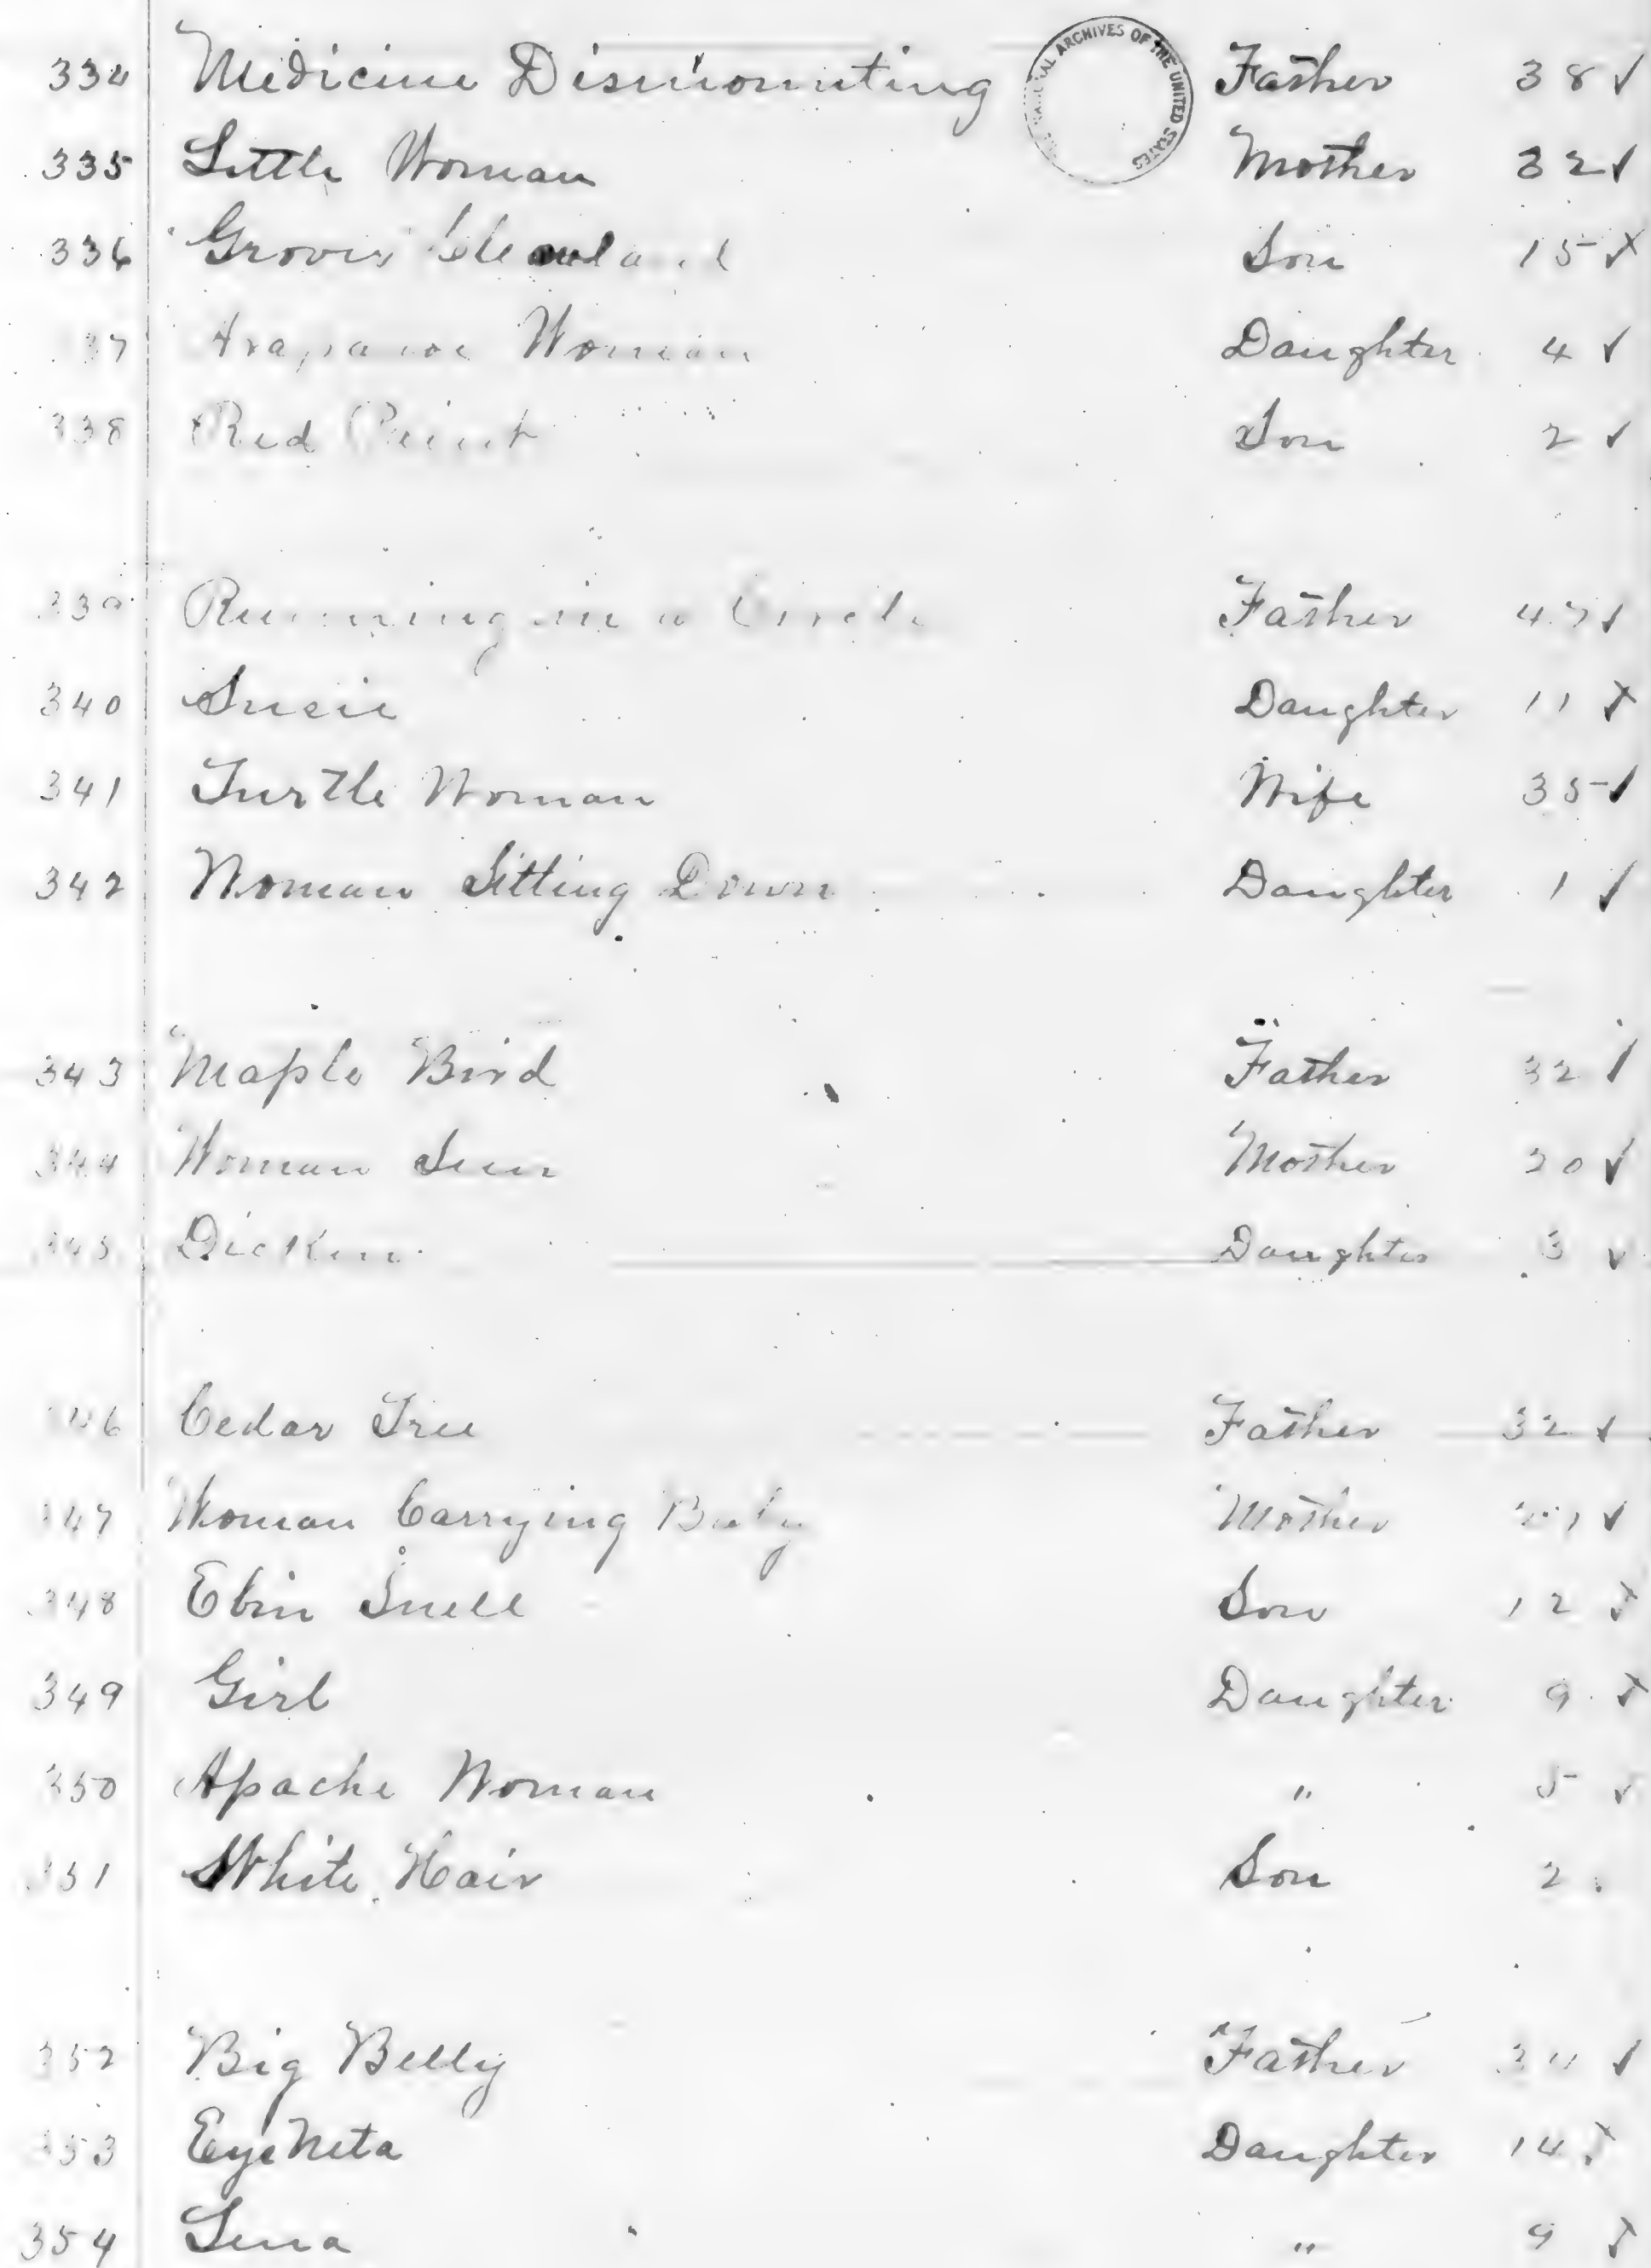 334 Medicine Dismounting Father 38 ✓
335 Little Woman Mother 32 ✓
336 Grover Cleveland Son 15 ✓
337 Arapahoe Woman Daughter 4 ✓
338 Red Paint Son 2 ✓
339 Running in a Circle Father 47 ✓
340 Susie Daughter 11 ✓
341 Turtle Woman Wife 35 ✓
342 Woman Sitting Down Daughter 1 ✓
343 Maple Bird Father 32 ✓
344 Woman Sun Mother 20 ✓
345 Daughter 3 ✓
346 Cedar Tree Father 32 ✓
347 Woman Carrying Baby Mother ✓
348 Ebin Snell Son 12 ✓
349 Girl Daughter 9 ✓
350 Apache Woman " 5 ✓
351 White Hair Son 2
352 Big Belly Father 34 ✓
353 Eye Neta Daughter 14 ✓
354 Lena " 9 ✓
ARCHIVES OF THE UNITED STATES